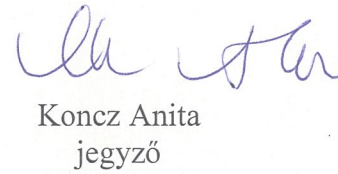 Koncz Anita
jegyző